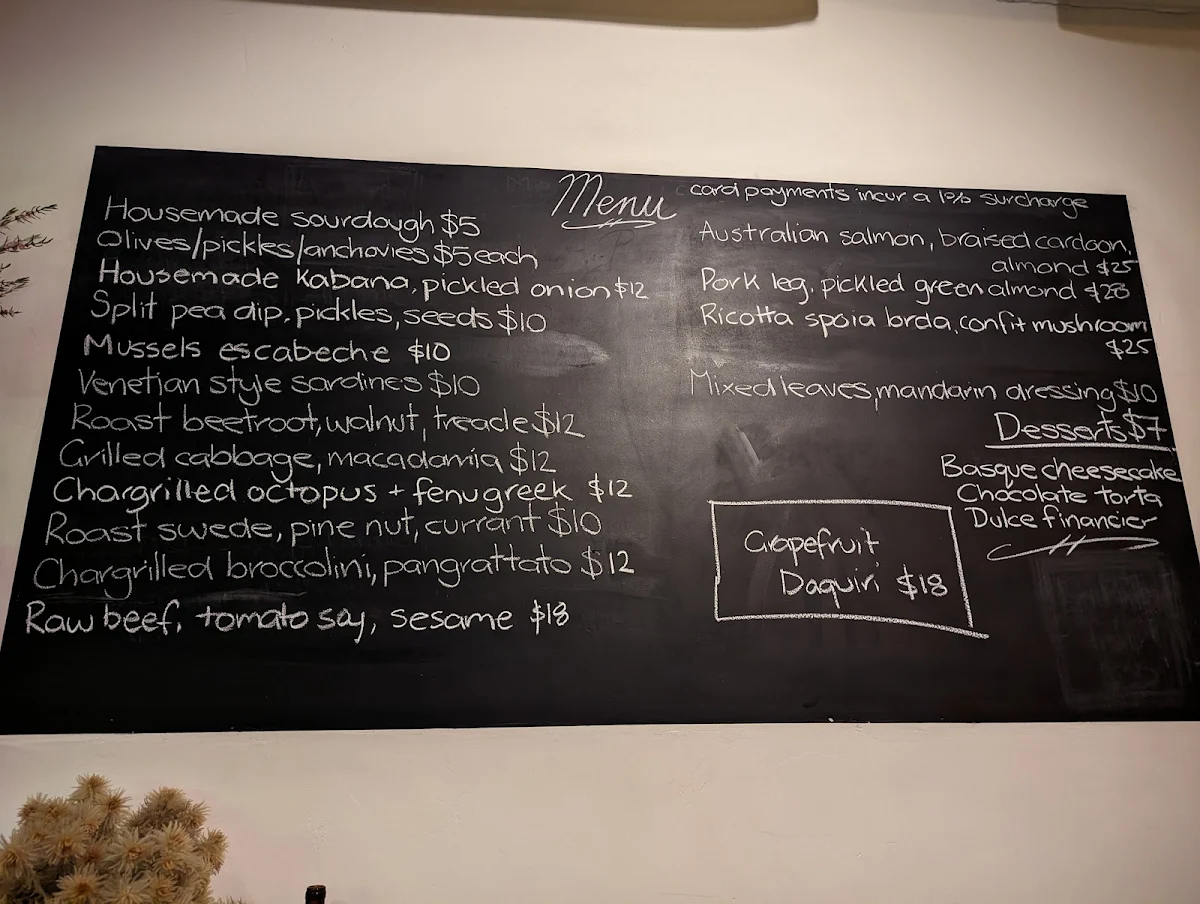 Menu
Housemade sourdough $5
Olives/pickles/anchovies $5 each
Housemade kabana, pickled onion $12
Split pea dip, pickles, seeds $10
Mussels escabeche $10
Venetian style sardines $10
Roast beetroot, walnut, treacle $12
Grilled cabbage, macadamia $12
Chargrilled octopus + fenugreek $12
Roast swede, pine nut, currant $10
Chargrilled broccolini, pangrattato $12
Raw beef, tomato soy, sesame $18
card payments incur a 1% surcharge
Australian salmon, braised cardoon,
almond $25
Pork leg, pickled green almond $28
Ricotta spoia lorda, confit mushroom
$25
Mixed leaves, mandarin dressing $10
Desserts $7
Basque cheesecake
Chocolate torta
Dulce financier
Grapefruit
Daquiri $18